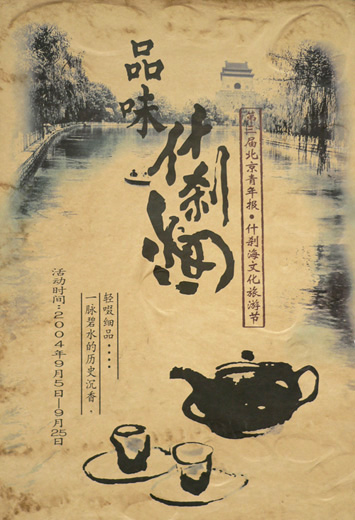 品味
什刹海
第三届北京青年报·什刹海文化旅游节
轻啜细品····
一脉碧水的历史沉香.
活动时间:2004年9月5日—9月25日